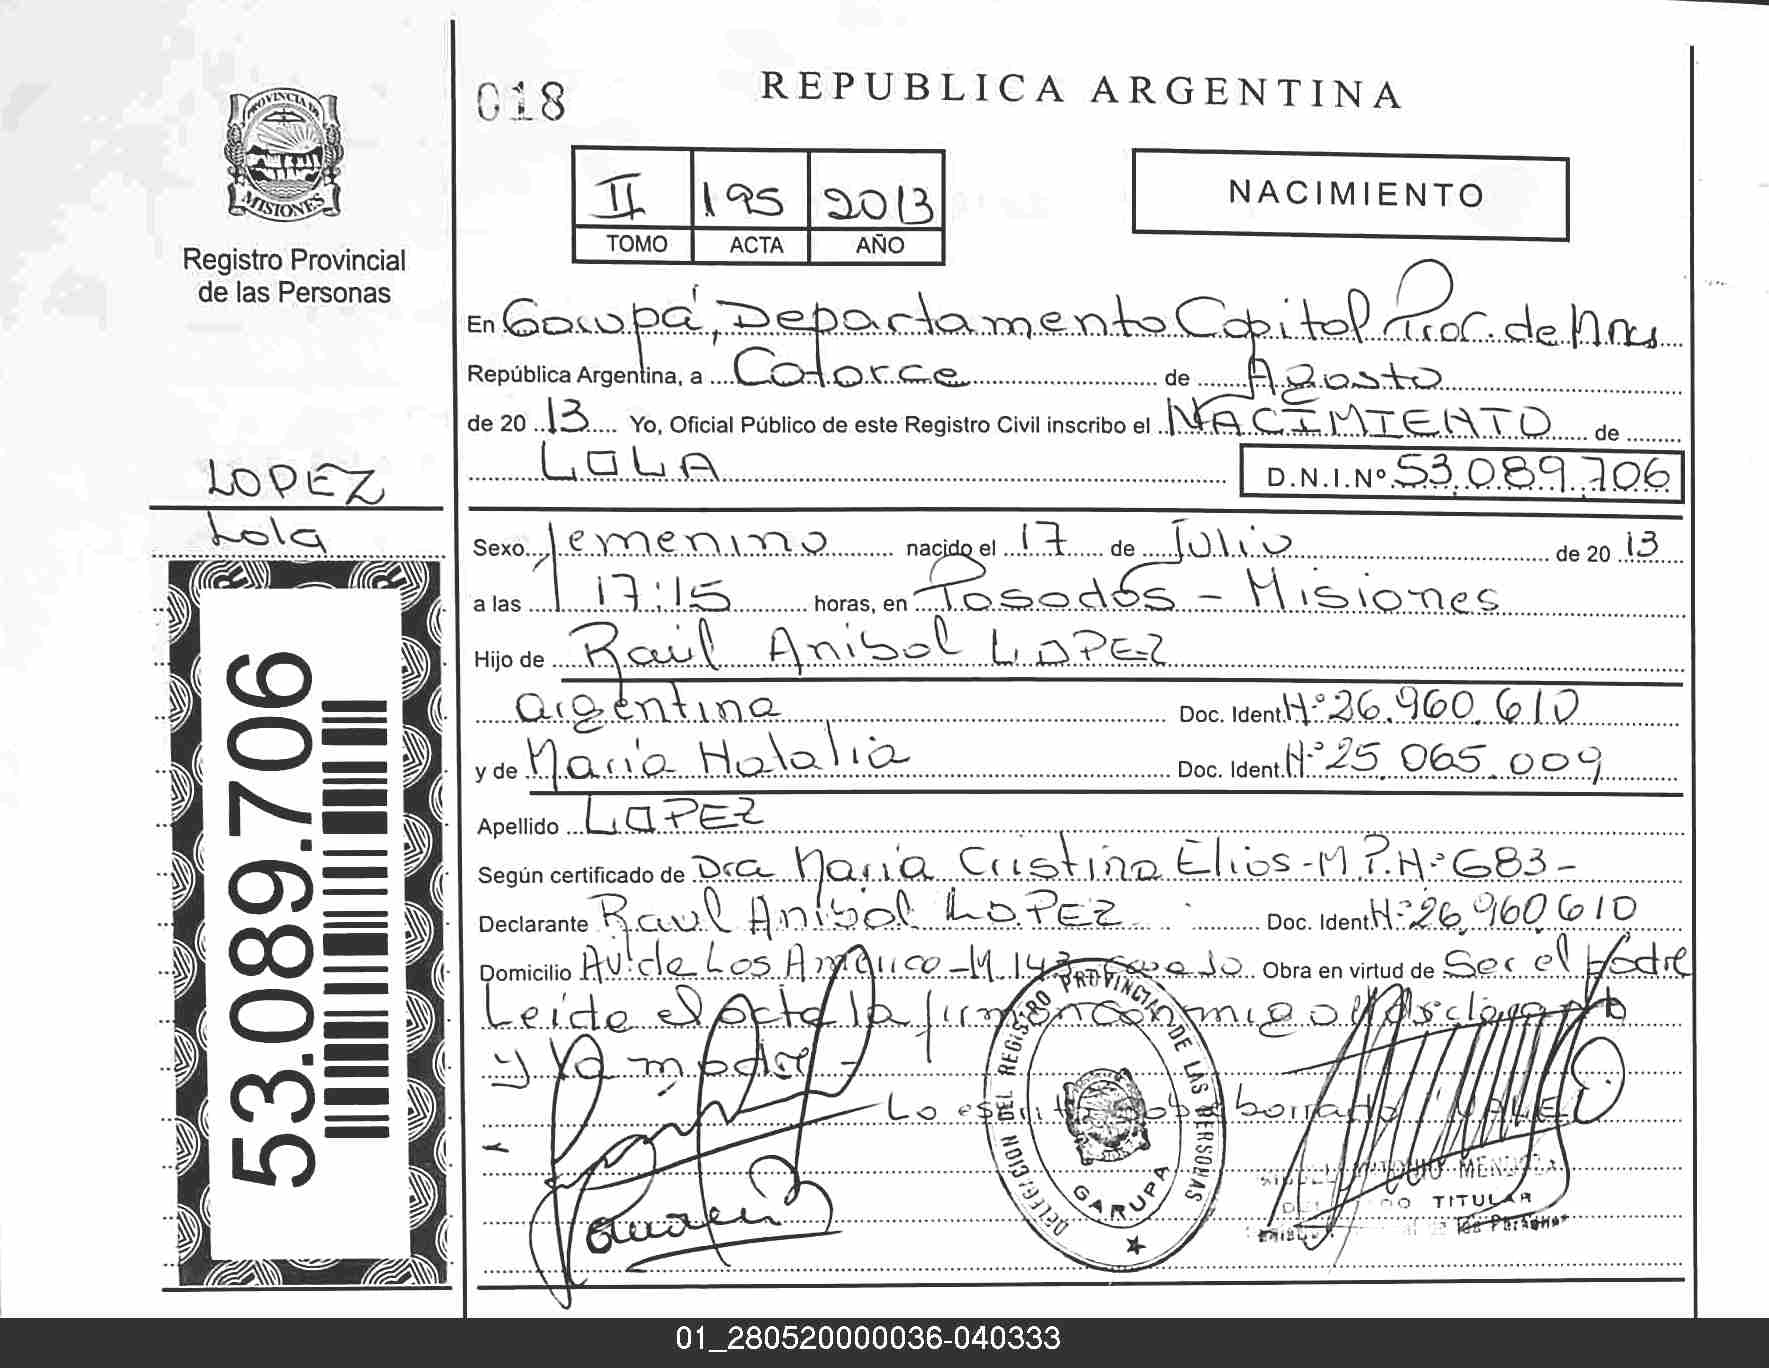 018
REPUBLICA ARGENTINA
PROVINCIA DE
MISIONES
Registro Provincial
de las Personas
II 195 2013
TOMO ACTA AÑO
NACIMIENTO
En Garupá, Departamento Capital Prov. de Mnes
República Argentina, a Catorce de Agosto
de 20 13 Yo, Oficial Público de este Registro Civil inscribo el NACIMIENTO de
LOLA D.N.I.Nº 53.089.706
LOPEZ
Lola
53.089.706
Sexo femenino nacido el 17 de Julio de 20 13
a las 17:15 horas, en Posadas - Misiones
Hijo de Raúl Anibal LOPEZ
argentina Doc. Ident. Nº 26.960.610
y de María Natalia Doc. Ident. Nº 25.065.009
Apellido LOPEZ
Según certificado de Dra María Cristina Elias - M.P.Nº 683 -
Declarante Raul Anibal LOPEZ Doc. Ident. Nº 26.960.610
Domicilio Av. de Los M 143 Obra en virtud de Ser el Padre
Leida el acta la firman conmigo el declarante
y la madre -
Lo escrito sobre borrado VALE
DELEGACION DEL REGISTRO PROVINCIAL DE LAS PERSONAS
GARUPA
TITULAR
de las Personas
01_280520000036-040333